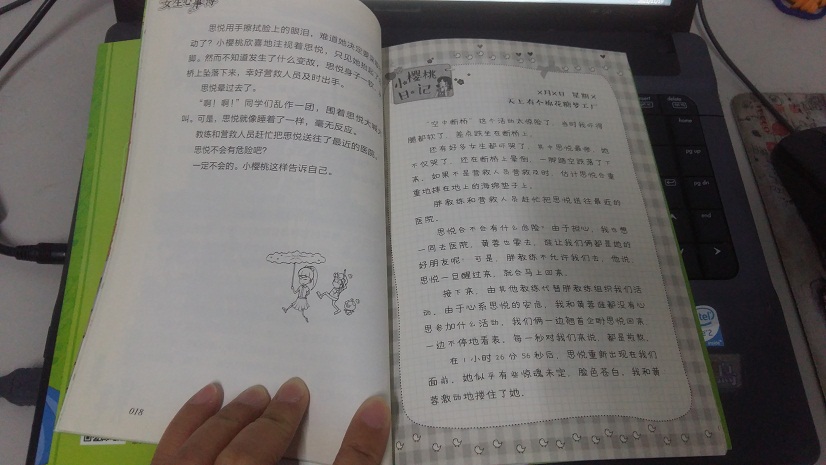 女生心事簿
思悦用手擦拭脸上的眼泪,难道她决定要
动了?小樱桃欣喜地注视着思悦,只见她
翼。然而不知道发生了什么变故,思悦身子一
桥上坠落下来,幸好营救人员及时出手。
思悦晕过去了。
“啊!啊!”同学们乱作一团,围着思悦大喊
叫。可是,思悦就像睡着了一样,毫无反应。
教练和营救人员赶忙把思悦送往了最近的医院。
思悦不会有危险吧?
一定不会的,小樱桃这样告诉自己。
018
小樱桃
日记
×月×日 星期×
天上有个棉花糖梦工厂
“空中断桥”这个活动太惊险了,当时我吓得
腿都软了,差点跌坐在断桥上。
还有好多女生都吓哭了,其中思悦最惨,她
不仅哭了,还在断桥上晕倒,一脚踏空跌落了下
来,如果不是营救人员营救及时,估计思悦会重
重地摔在地上的海绵垫子上。
胖教练和营救人员赶忙把思悦送往最近的
医院。
思悦会不会有什么危险?由于担心,我也想
一同去医院,黄蓉也要去,谁让我们俩都是她的
好朋友呢?可是,胖教练不允许我们去,他说,
思悦一旦醒过来,就会马上回来。
接下来,由其他教练代替胖教练组织我们活
动。由于心系思悦的安危,我和黄蓉谁都没有心
思参加什么活动,我们俩一边翘首企盼思悦回来,
一边不停地看表,每一秒对我们来说,都是煎熬。
在1小时26分56秒后,思悦重新出现在我们
面前,她似乎有些惊魂未定,脸色苍白,我和黄
蓉激动地搂住了她。
pg up
pg dn
end
intel